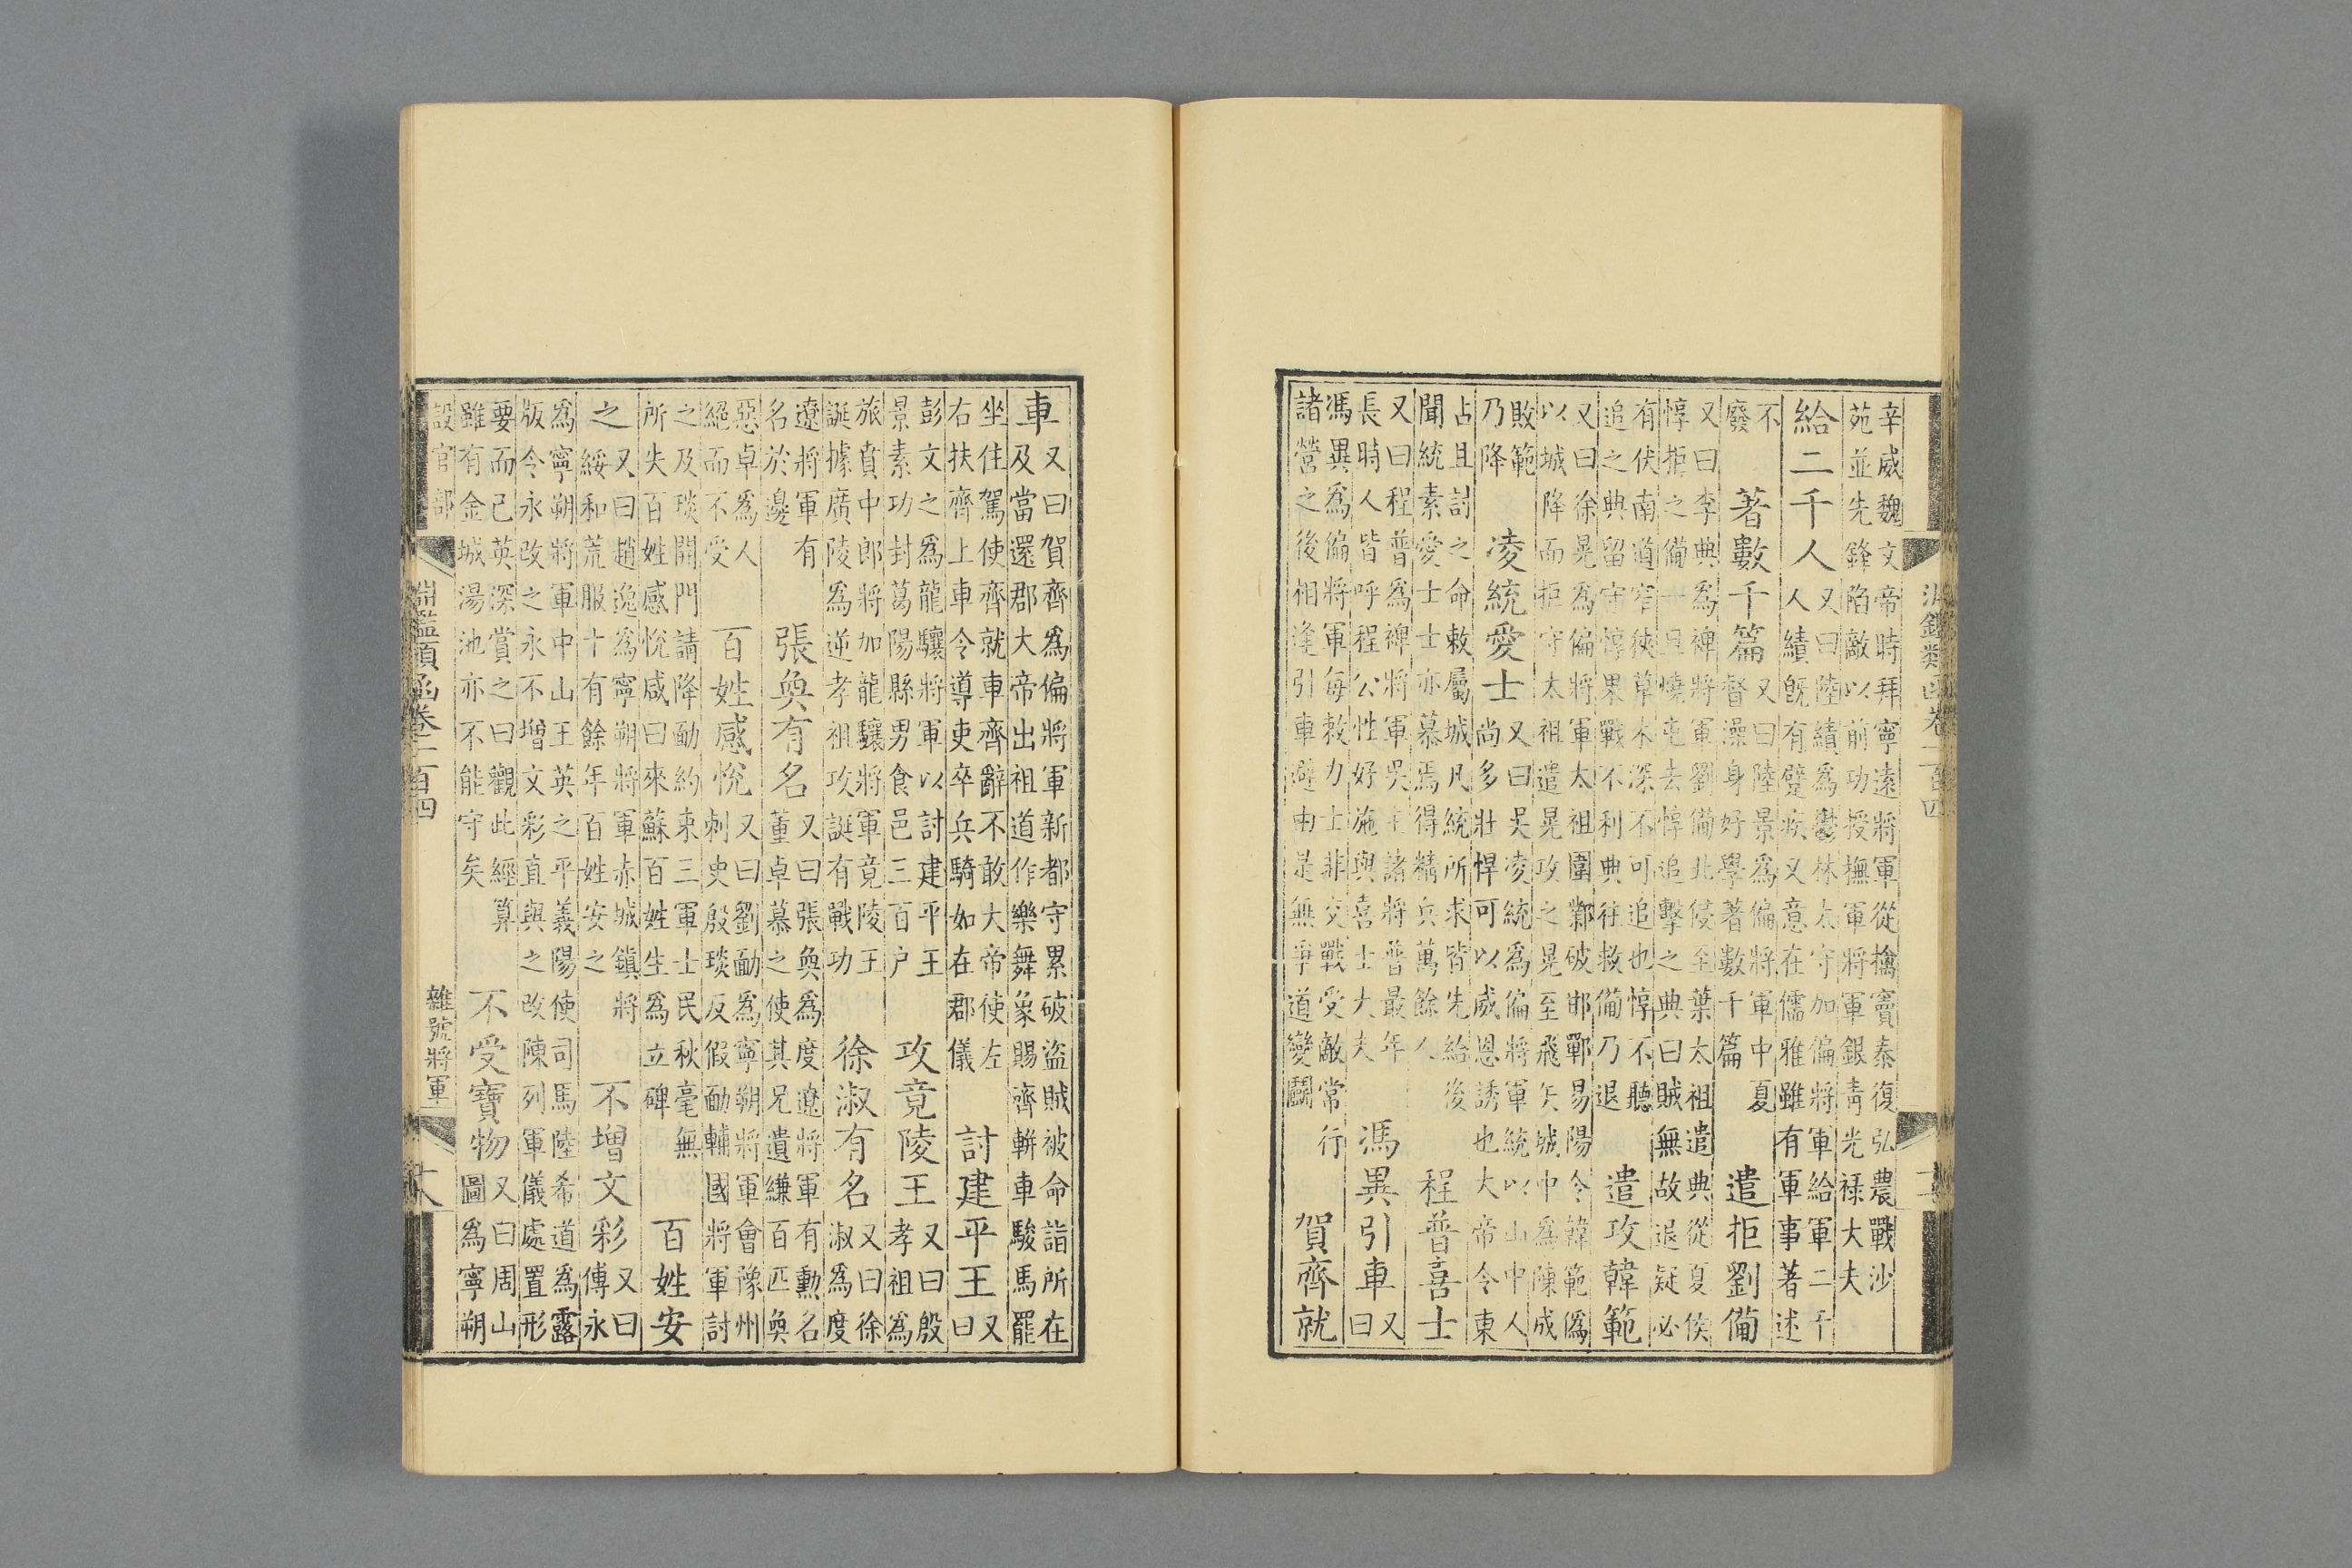 辛威魏文帝時拜寧遠將軍從擒竇泰復弘農戰沙
苑並先鋒陷敵以前功授撫軍將軍銀青光祿大夫
給二千人
又曰陸績爲鬱林太守加偏將軍給軍二千
人績既有躄疾又意在儒雅雖有軍事著述
不
廢
著數千篇
又曰陸景爲偏將軍中夏
督澡身好學著數千篇
遣拒劉備
又曰李典爲裨將軍劉備北侵至葉太祖遣典從夏侯
惇拒之備一旦燒屯去惇追擊之典曰賊無故退疑必
有伏南道窄狹草木深不可追也惇不聽
追之典留守惇果戰不利典往救備乃退
遣攻韓範
又曰徐晃爲偏將軍太祖圍鄴破邯鄲易陽令韓範僞
以城降而拒守太祖遣晃攻之晃至飛矢城中爲陳成
敗範
乃降
凌統愛士
又曰吳凌統爲偏將軍統以山中人
尚多壯悍可以威恩誘也大帝令東
占且討之命敕屬城凡統所求皆先給後
聞統素愛士士亦慕焉得精兵萬餘人
程普喜士
又曰程普爲裨將軍吳主諸將普最年
長時人皆呼程公性好施與喜士大夫
馮異引車
又
曰
馮異爲偏將軍每敕力士非交戰受敵常行
諸營之後相逢引車避由是無爭道變鬭
賀齊就
車
又曰賀齊爲偏將軍新都守累破盜賊被命詣所在
及當還郡大帝出祖道作樂舞象賜齊軿車駿馬罷
坐住駕使齊就車齊辭不敢大帝使左
右扶齊上車令導吏卒兵騎如在郡儀
討建平王
又
曰
彭文之爲龍驤將軍以討建平王
景素功封葛陽縣男食邑三百户
攻竟陵王
又曰殷
孝祖爲
旅賁中郎將加龍驤將軍竟陵王
誕據廣陵爲逆孝祖攻誕有戰功
徐淑有名
又曰徐
淑爲度
遼將軍有
名於邊
張奐有名
又曰張奐爲度遼將軍有勳名
董卓慕之使其兄遺縑百匹奐
惡卓爲人
絕而不受
百姓感悅
又曰劉勔爲寧朔將軍會豫州
刺史殷琰反假勔輔國將軍討
之及琰開門請降勔約束三軍士民秋毫無
所失百姓感悅咸曰來蘇百姓生爲立碑
百姓安
之
又曰趙逸爲寧朔將軍赤城鎮將
綏和荒服十有餘年百姓安之
不增文彩
又曰
傅永
爲寧朔將軍中山王英之平義陽使司馬陸希道爲露
版令永改之永不增文彩直與之改陳列軍儀處置形
要而已英深賞之曰觀此經算
雖有金城湯池亦不能守矣
不受寶物
又曰周山
圖爲寧朔
設官部
淵鑑類函卷二百四
雜號將軍